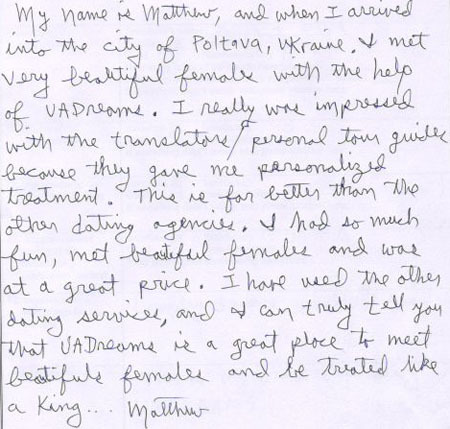 My name is Matthew, and when I arrived
into the city of Poltava, Ukraine. I met
very beautiful females with the help
of UADreams. I really was impressed
with the translators/personal tour guides
because they gave me personalized
treatment. This is far better than the
other dating agencies. I had so much
fun, met beautiful females and was
at a great price. I have used the other
dating services, and I can truly tell you
that UADreams is a great place to meet
beautifuls females and be treated like
a King... Matthew